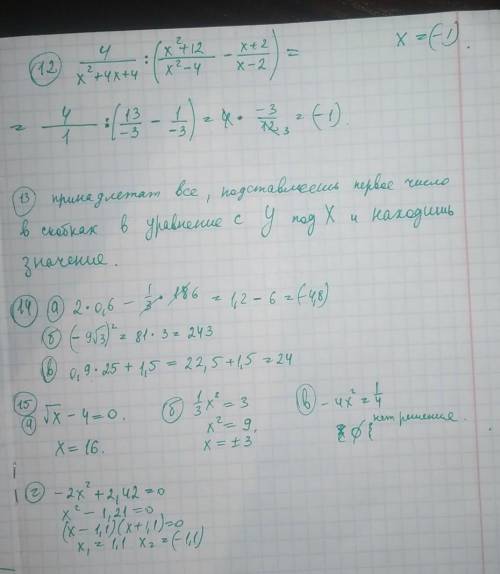 12) 4/(x²+4x+4) : ((x²+12)/(x²-4) - (x+2)/(x-2)) = x = (-1).
= 4/1 : (13/-3 - 1/-3) = 4 · -3/12 3 = (-1).
13) принадлетат все, подставляешь первое число
в скобках в уравнение с У под Х и находишь
значение.
14) а) 2·0,6 - 1/3 · 18 6 = 1,2 - 6 = (-4,8)
б) (-9√3)² = 81·3 = 243
в) 0,9·25 + 1,5 = 22,5 + 1,5 = 24
15) а) √x - 4 = 0. б) 1/3 x² = 3 в) -4x² = 1/4
x = 16. x² = 9. ∅ { нет решения.
x = ±3
г) -2x² + 2,42 = 0
x² - 1,21 = 0
(x - 1,1)(x + 1,1) = 0
x₁ = 1,1 x₂ = (-1,1)